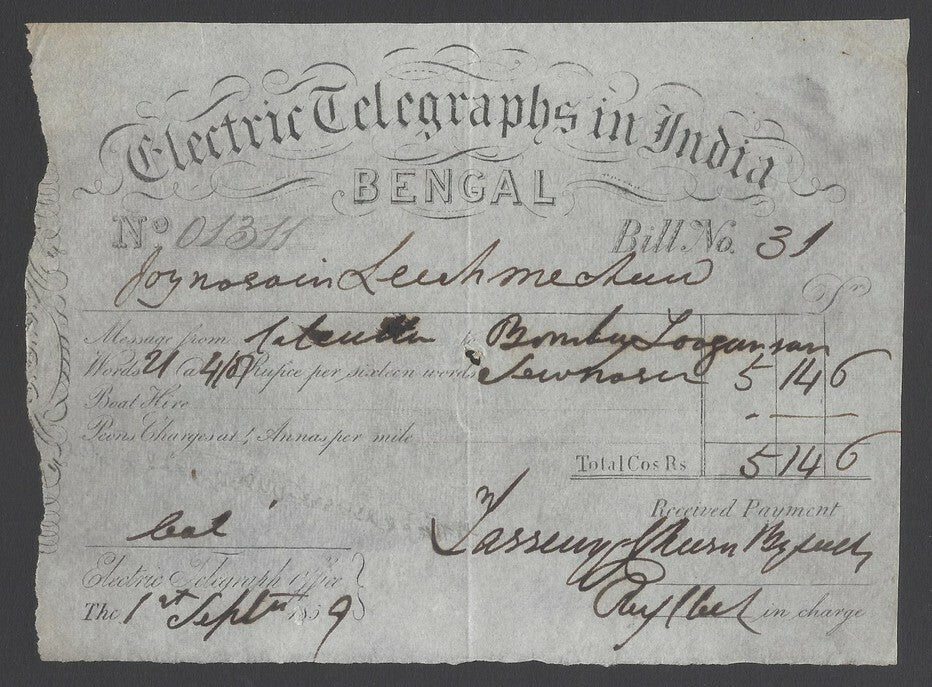 Electric Telegraphs in India
BENGAL
No 01311 Bill No. 31
Joynosain
Dr
Message from Calcutta to Bombay
Words 21 (a 4/8 Rupee per sixteen words 5 14 6
Boat Hire
Peons Charges at 4 Annas per mile
Total Cos Rs 5 14 6
Received Payment
Cal
Electric Telegraph Office
The 1st Septr 1859
in charge